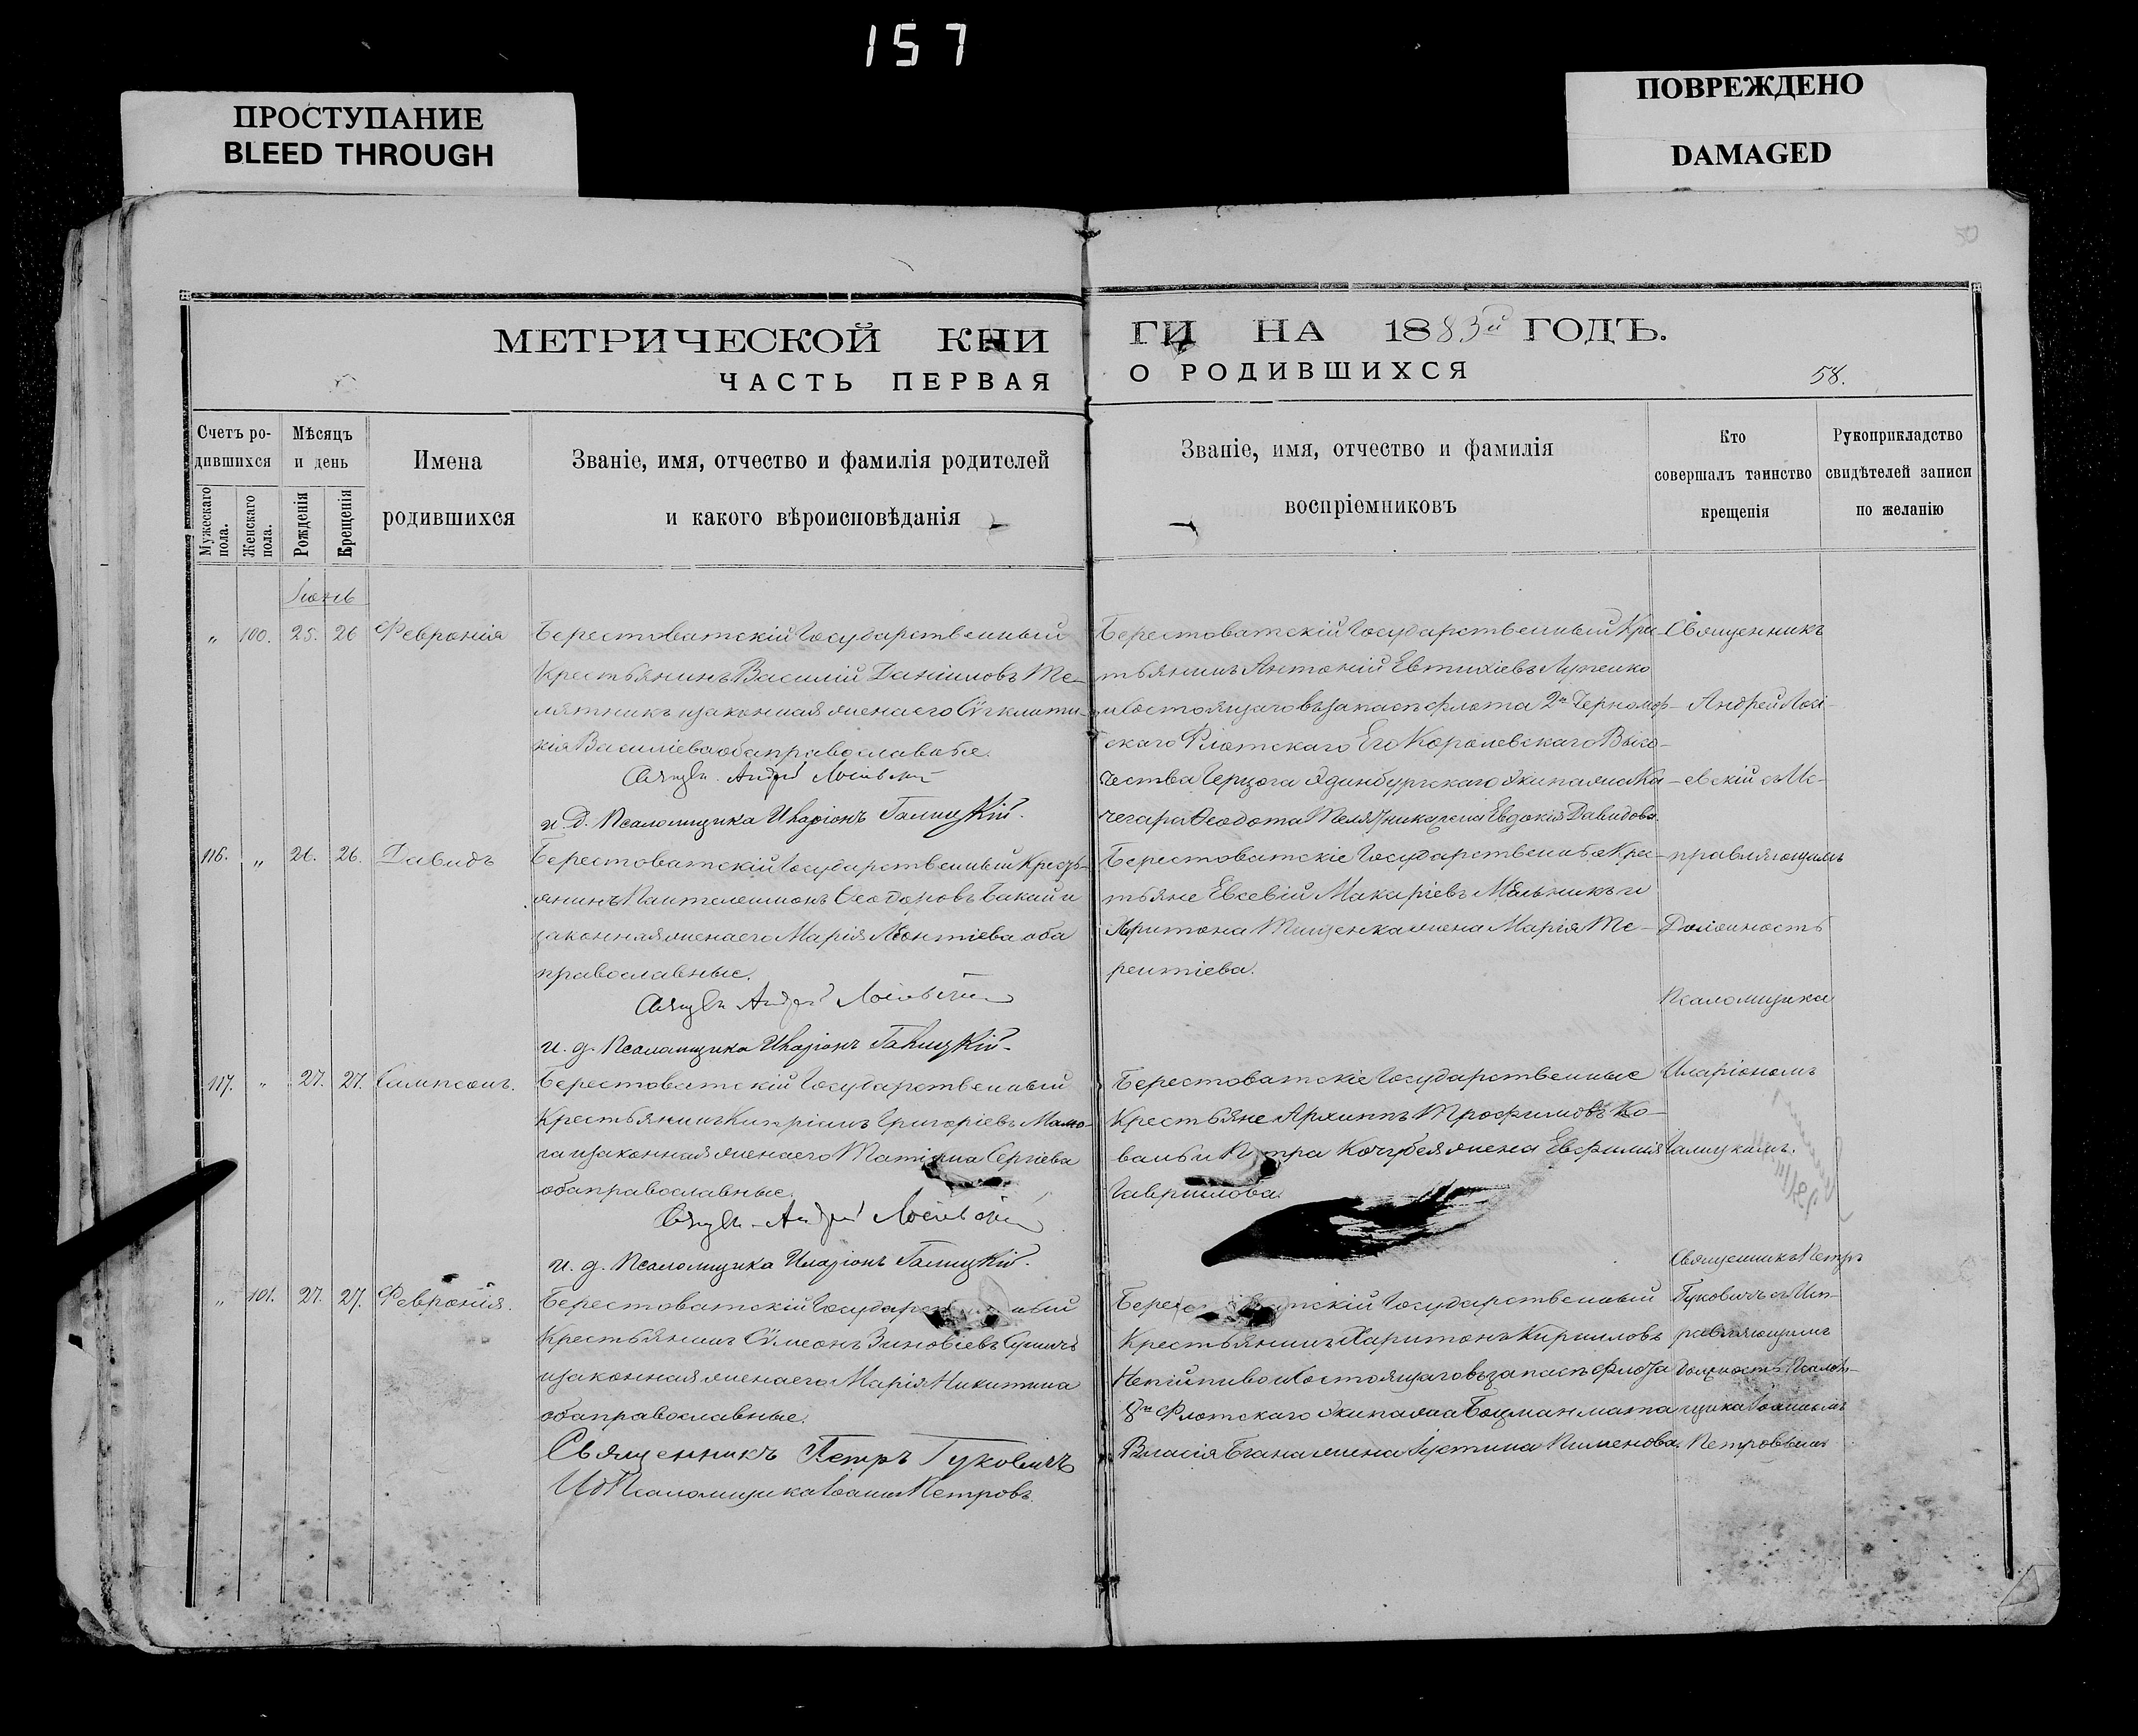 157
ПРОСТУПАНИЕ
BLEED THROUGH
ПОВРЕЖДЕНО
DAMAGED
50
МЕТРИЧЕСКОЙ КНИ
ЧАСТЬ ПЕРВАЯ
ГИ НА 1883й ГОДЪ.
О РОДИВШИХСЯ
58.
Счетъ ро-
дившихся
Мужескаго пола.
Женскаго пола.
Мѣсяцъ
и день
Рожденія
Крещенія
Имена
родившихся
Званіе, имя, отчество и фамилія родителей
и какого вѣроисповѣданія
Званіе, имя, отчество и фамилія
воспріемниковъ
Кто
совершалъ таинство
крещенія
Рукоприкладство
свидѣтелей записи
по желанію
Іюнь
„ 100. 25. 26 Февронія
Берестоватскій Государственный
Крестьянинъ Василій Даніиловъ Те-
лятникъ и законная жена его Сѵгклити-
кія Василіева оба православные.
Андрей
и. д. Псаломщика Иларіонъ Галицкій.
Берестоватскій Государственный Кре-
стьянинъ Антоній Евтихіевъ Луценко
и состоящаго въ запасѣ флота 2го Черномор-
скаго Флотскаго Его Королевскаго Высо-
чества Герцога Эдинбургскаго Экипажа Ко-
чегара Ѳеодота Телятника жена Евдокія Давидова.
Священникъ
Андрей
евскій съ Ис-
116. „ 26. 26. Давидъ
Берестоватскій Государственный Кресть-
янинъ Пантелеимонъ Ѳеодоровъ Бакай и
законная жена его Марія Леонтіева оба
православные.
Андрей
и. д. Псаломщика Иларіонъ Галицкій.
Берестоватскіе Государственные Кре-
стьяне Евсевій Макаріевъ Мельникъ и
Харитона Тищенка жена Марія Те-
рентіева.
правляющимъ
Должность
Псаломщика
117. „ 27. 27. Сампсонъ.
Берестоватскій Государственный
Крестьянинъ Кипріанъ Григоріевъ
и законная жена его Татіана Сергіева
оба православные.
Андрей
и. д. Псаломщика Иларіонъ Галицкій.
Берестоватскіе Государственные
Крестьяне Архиппъ Трофимовъ Ко-
валь и Петра Кочубея жена Евфимія
Гавриилова.
Иларіономъ
Галицкимъ.
„ 101. 27. 27. Февронія.
Берестоватскій Государственный
Крестьянинъ Сѵмеонъ Зиновіевъ
и законная жена его Марія Никитина
оба православные.
Священникъ Петръ Гуковичъ
ИД Псаломщика Іоаннъ Петровъ.
Берестоватскій Государственный
Крестьянинъ Харитонъ Кирилловъ
Непійпиво и состоящаго въ запасѣ флота
8го Флотскаго Экипажа Боцманмата
Власія жена Іустина Пименова.
Священникъ Петръ
Гуковичъ съ Исп-
равляющимъ
должность Псалом-
щика Іоанномъ
Петровымъ